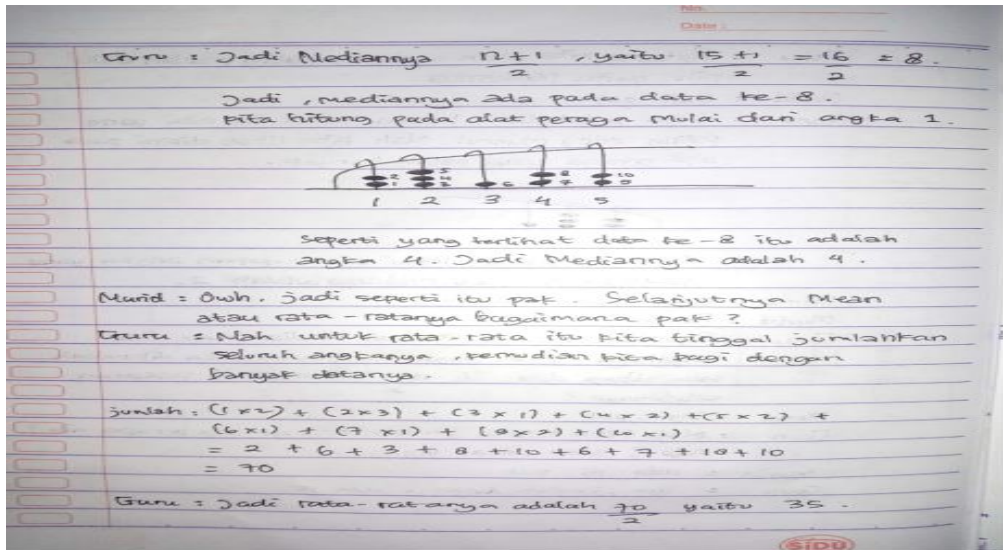 No.
Date :
Guru : Jadi Mediannya n+1/2 , yaitu 15+1/2 = 16/2 = 8.
Jadi , mediannya ada pada data ke-8.
Kita hitung pada alat peraga mulai dari angka 1.
2 5 8 10
1 4 3 6 7 9
1 2 3 4 5
seperti yang terlihat data ke-8 itu adalah
angka 4. Jadi Mediannya adalah 4.
Murid : Owh. jadi seperti itu pak. Selanjutnya Mean
atau rata-ratanya bagaimana pak ?
Guru : Nah untuk rata-rata itu kita tinggal jumlahkan
seluruh angkanya , kemudian kita bagi dengan
banyak datanya.
jumlah : (1x2) + (2x3) + (3x1) + (4x2) + (5x2) +
(6x1) + (7x1) + (9x2) + (10x1)
= 2 + 6 + 3 + 8 + 10 + 6 + 7 + 18 + 10
= 70
Guru : Jadi rata-ratanya adalah 70/2 yaitu 35.
SIDU